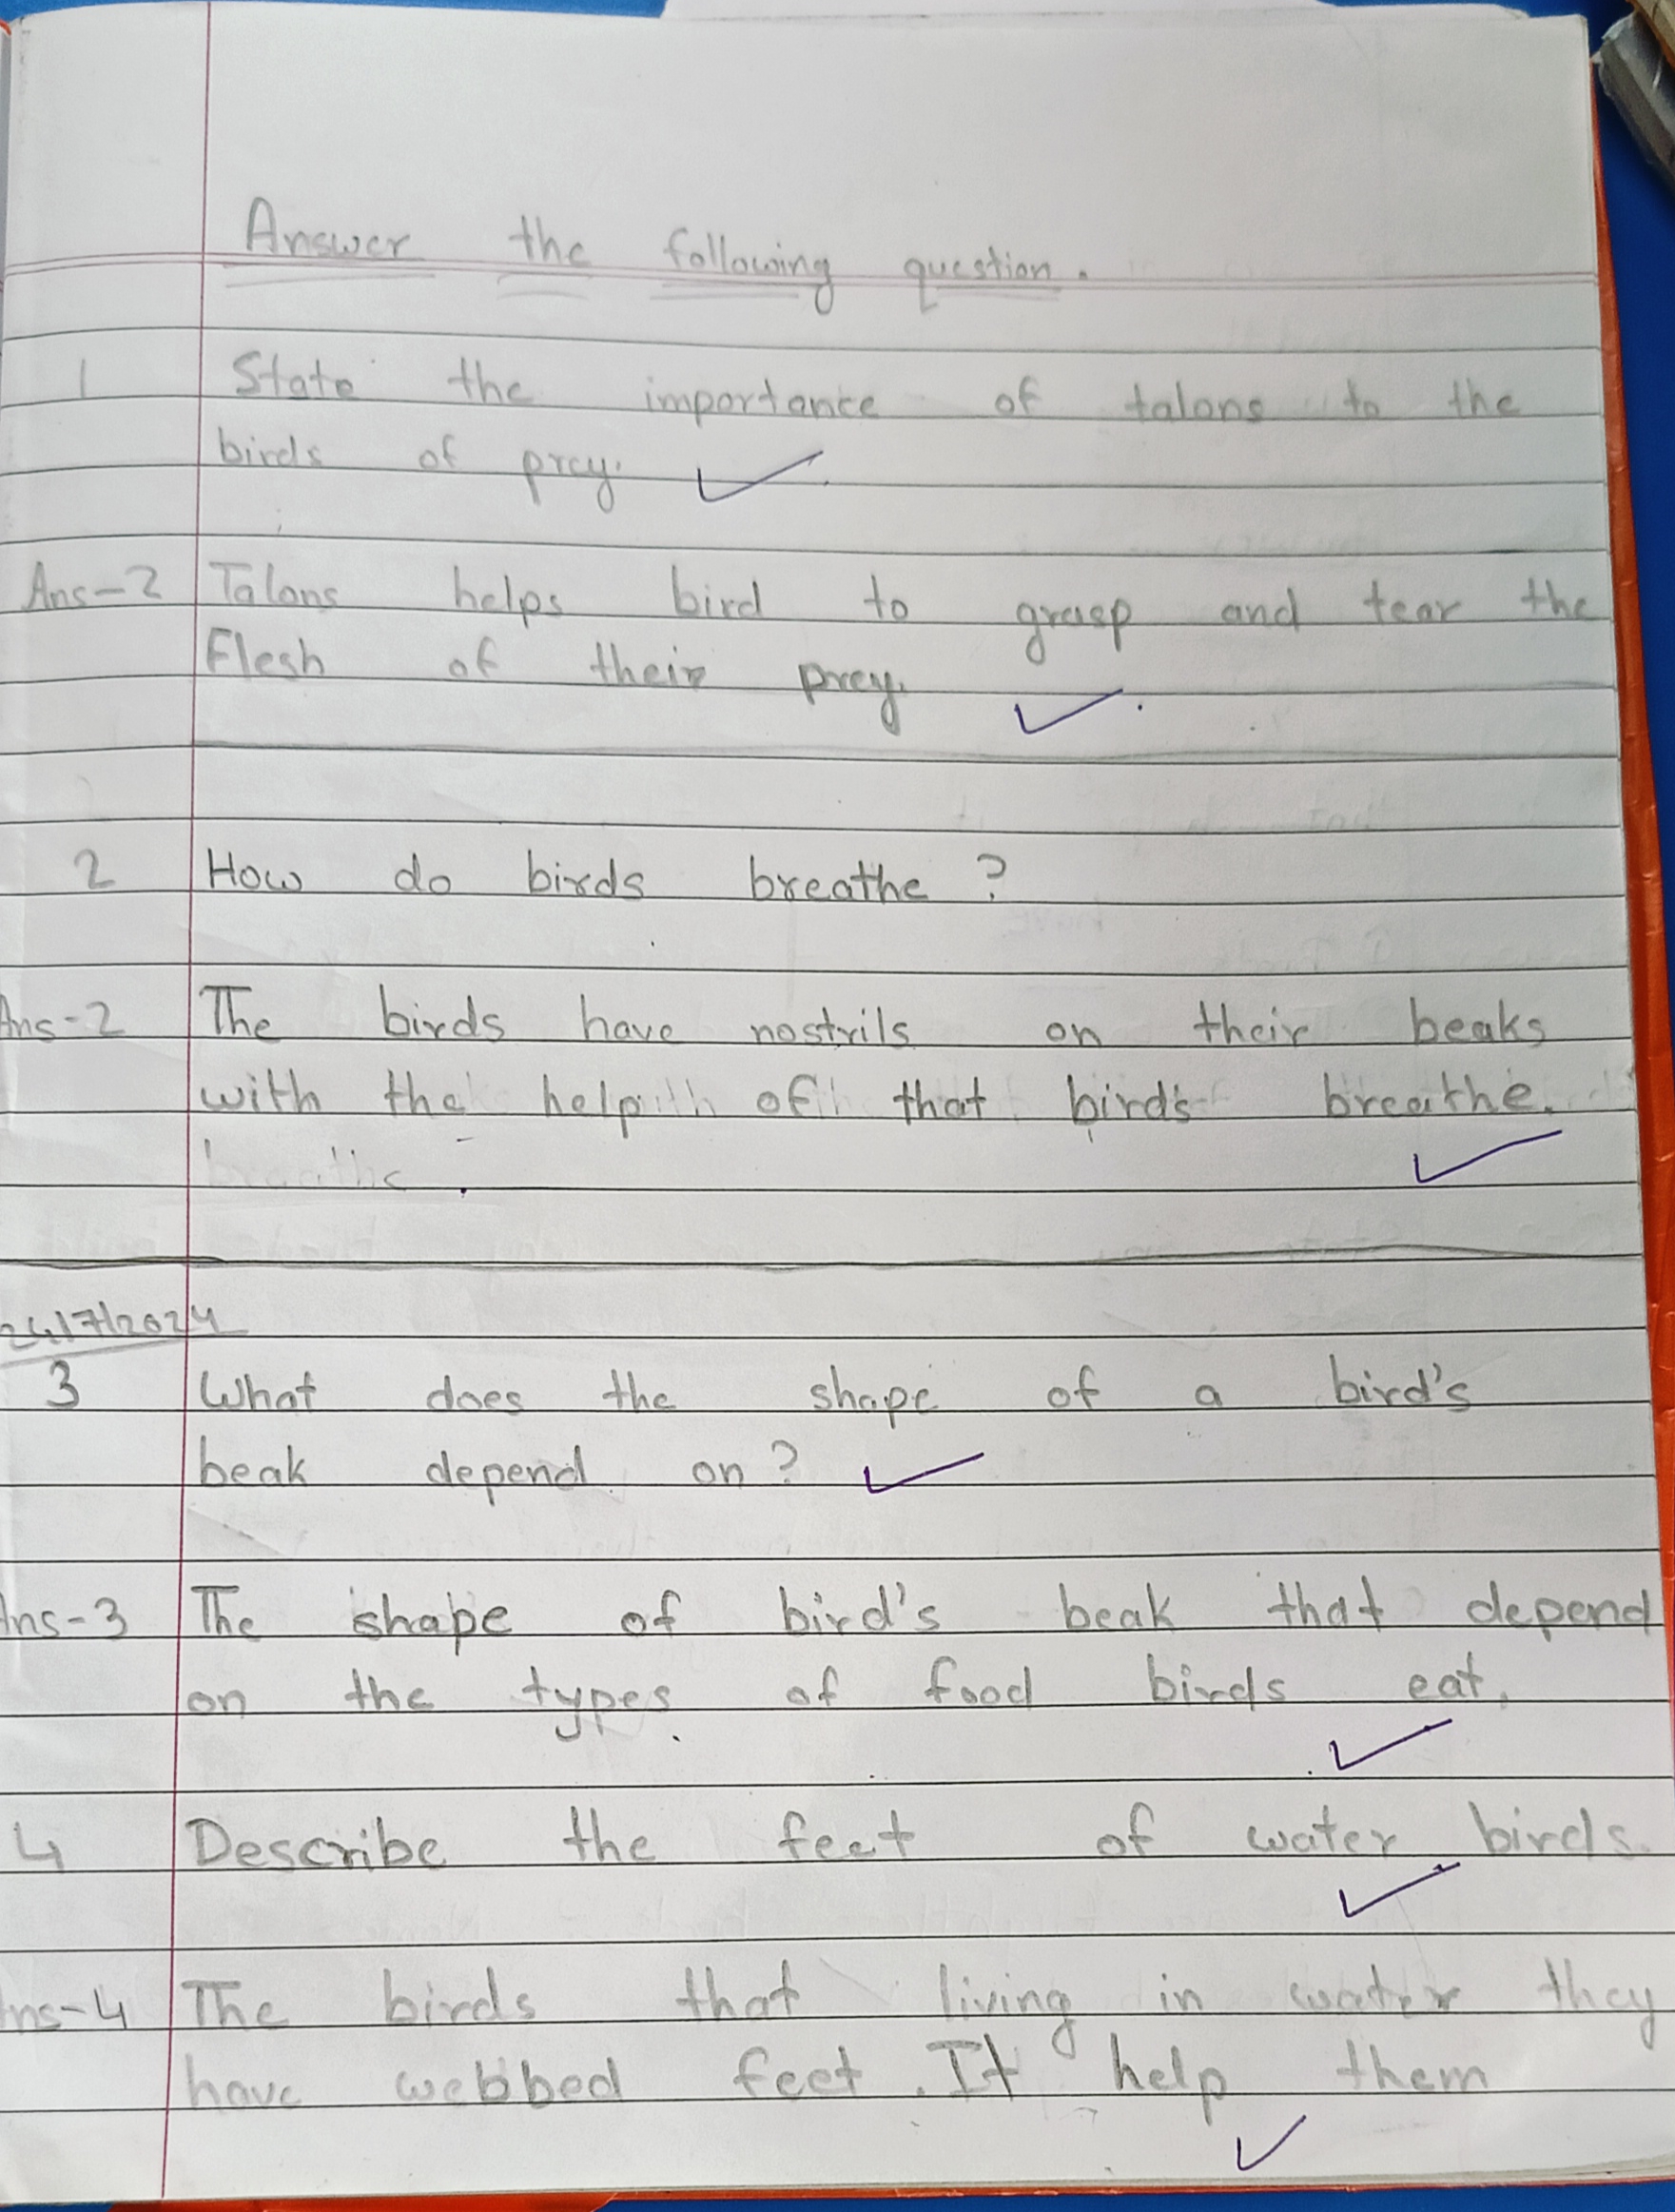 Answer the following question.
1 State the importance of talons to the
birds of prey.
Ans-2 Talons helps bird to grasp and tear the
Flesh of their prey.
2 How do birds breathe ?
Ans-2 The birds have nostrils on their beaks
with the help of that birds breathe.
breathe.
24/7/2024
3 What does the shape of a bird's
beak depend on ?
Ans-3 The shape of bird's beak that depend
on the types of food birds eat.
4 Describe the feet of water birds.
Ans-4 The birds that living in water they
have webbed feet. It help them